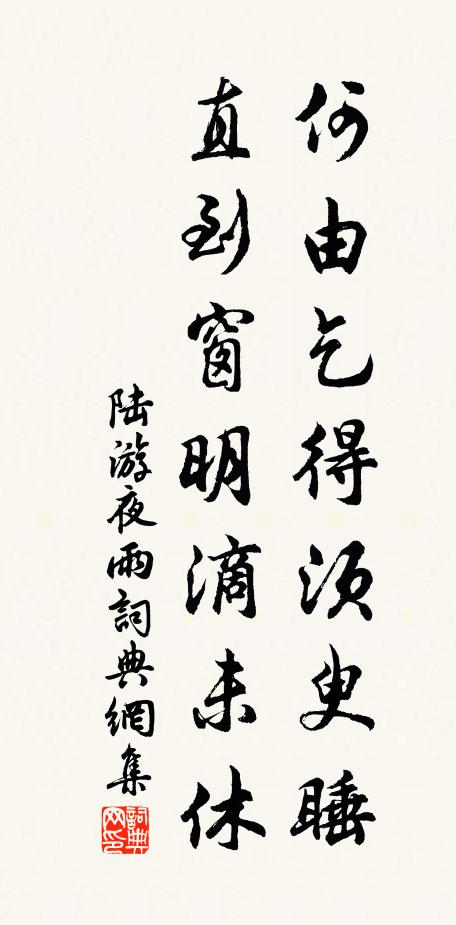 何由乞得須臾睡
直到窗明滴未休
陸游夜雨詞典網集
詞典网印